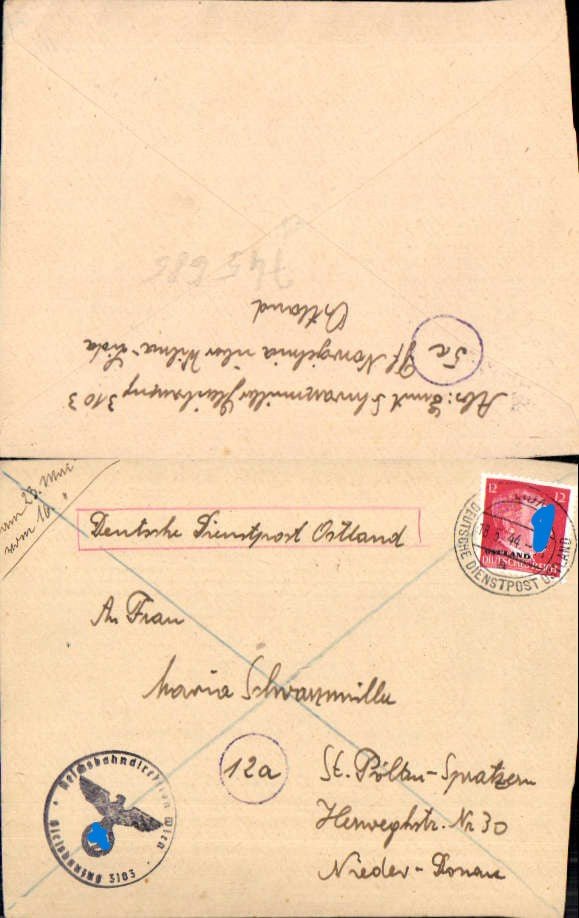 745685
Abs: Ernst Schwarzmüller Gleitzweig 3103
5a Pf. Nowojelnia über Wilna - Lida
Ostland
am 23. Mai
vom 10.
Deutsche Dienstpost Ostland
12 12
OSTLAND
DEUTSCHES REICH
DEUTSCHE DIENSTPOST OSTLAND
44
An Frau
Maria Schwarzmüller
12a
St. Pölten-Spratzern
Herweghstr. Nr 30
Nieder-Donau
Reichsbahndirektion Wien
3103